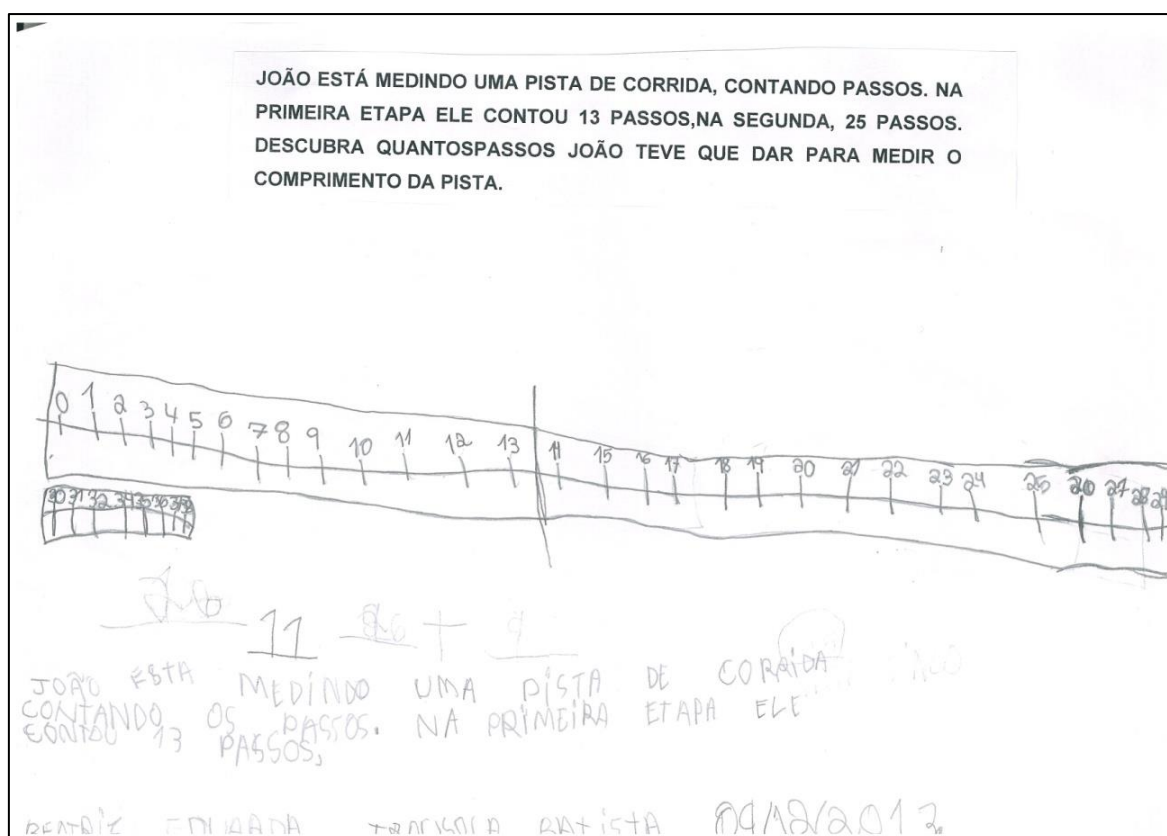 JOÃO ESTÁ MEDINDO UMA PISTA DE CORRIDA, CONTANDO PASSOS. NA
PRIMEIRA ETAPA ELE CONTOU 13 PASSOS,NA SEGUNDA, 25 PASSOS.
DESCUBRA QUANTOSPASSOS JOÃO TEVE QUE DAR PARA MEDIR O
COMPRIMENTO DA PISTA.
0 1 2 3 4 5 6 7 8 9 10 11 12 13 14 15 16 17 18 19 20 21 22 23 24 25 26 27 28 29
30 31 32 34 35 36 37 38
26 11 26 + 9
JOÃO ESTA MEDINDO UMA PISTA DE CORRIDA
CONTANDO OS PASSOS. NA PRIMEIRA ETAPA ELE
CONTOU 13 PASSOS,
BEATRIZ EDUARDA BATISTA